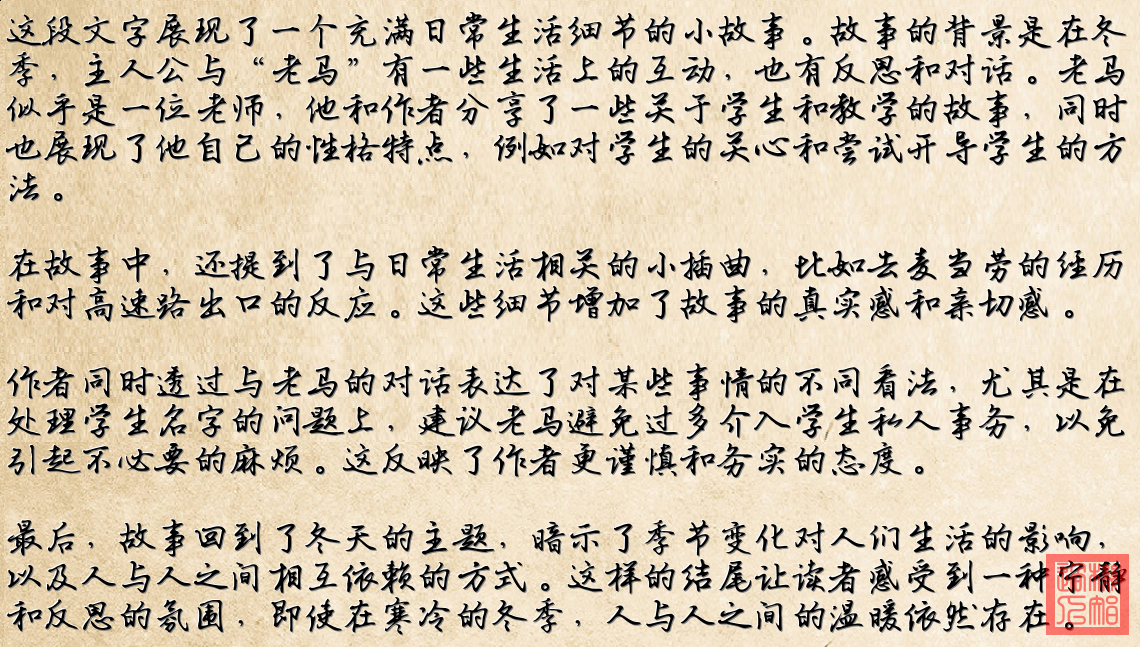 这段文字展现了一个充满日常生活细节的小故事。故事的背景是在冬
季，主人公与“老马”有一些生活上的互动，也有反思和对话。老马
似乎是一位老师，他和作者分享了一些关于学生和教学的故事，同时
也展现了他自己的性格特点，例如对学生的关心和尝试开导学生的方
法。
在故事中，还提到了与日常生活相关的小插曲，比如去麦当劳的经历
和对高速路出口的反应。这些细节增加了故事的真实感和亲切感。
作者同时透过与老马的对话表达了对某些事情的不同看法，尤其是在
处理学生名字的问题上，建议老马避免过多介入学生私人事务，以免
引起不必要的麻烦。这反映了作者更谨慎和务实的态度。
最后，故事回到了冬天的主题，暗示了季节变化对人们生活的影响，
以及人与人之间相互依赖的方式。这样的结尾让读者感受到一种宁静
和反思的氛围，即使在寒冷的冬季，人与人之间的温暖依然存在。